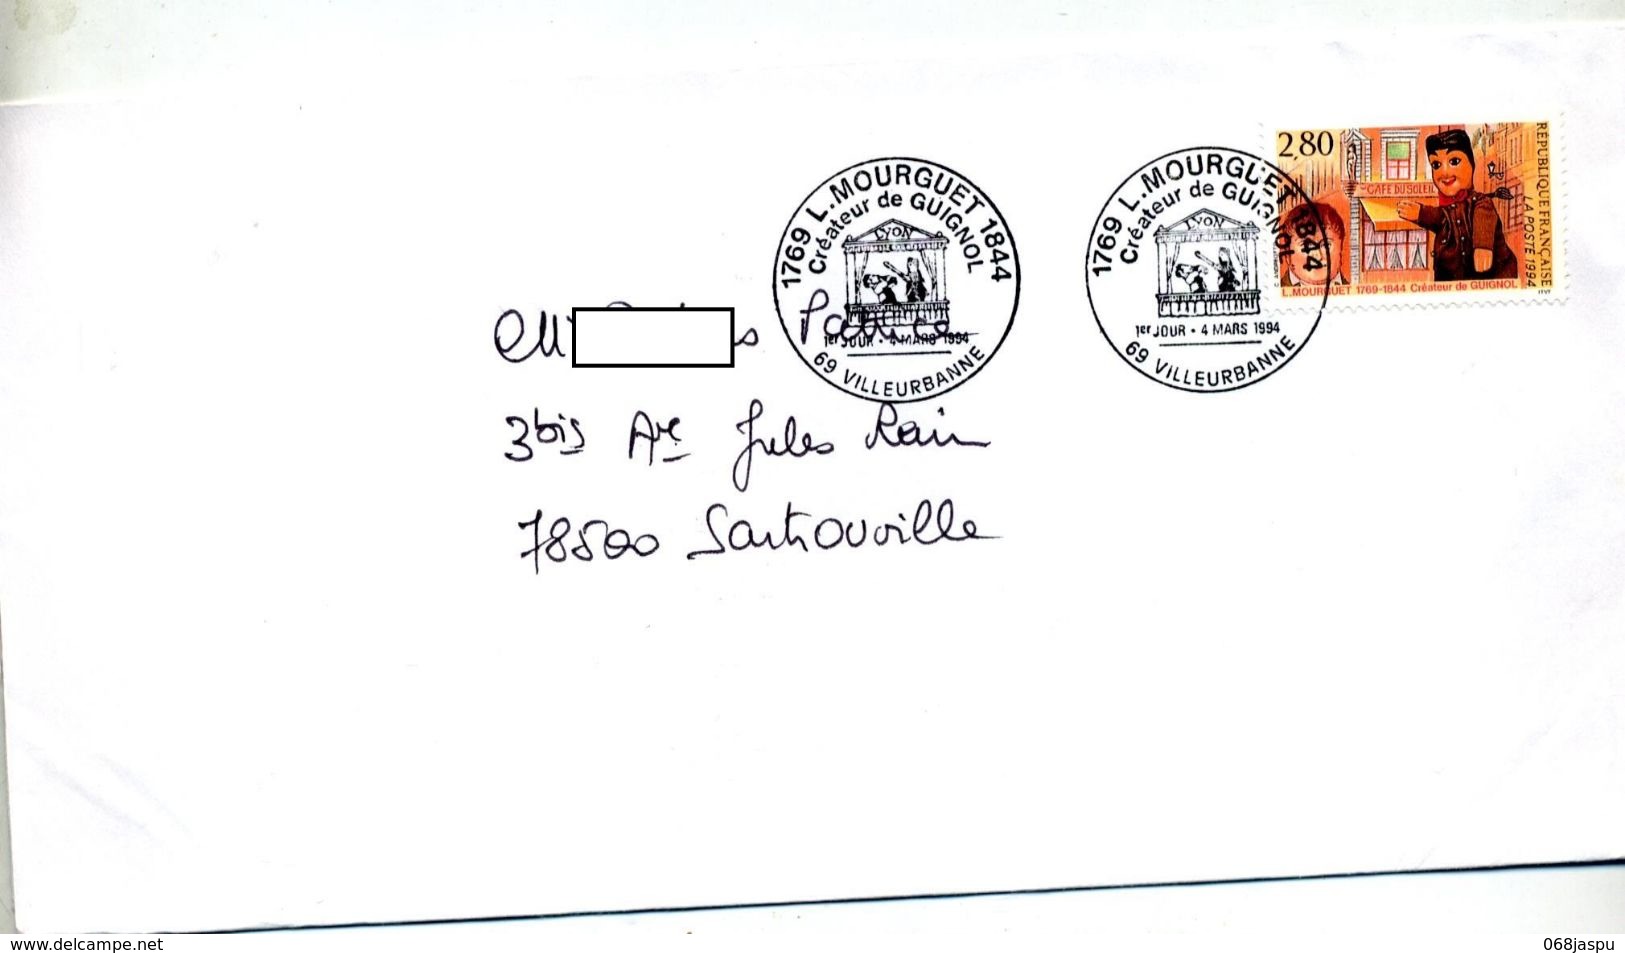 1769 L. MOURGUET 1844
Créateur de GUIGNOL
LYON
1er JOUR • 4 MARS 1994
69 VILLEURBANNE
1769 L. MOURGUET 1844
Créateur de GUIGNOL
LYON
1er JOUR • 4 MARS 1994
69 VILLEURBANNE
2,80
CAFE DU SOLEIL
RÉPUBLIQUE FRANÇAISE
LA POSTE 1994
L. MOURGUET 1769-1844 Créateur de GUIGNOL
Patrice
3bis Ave Jules Rein
78500 Sartrouville
www.delcampe.net
068jaspu